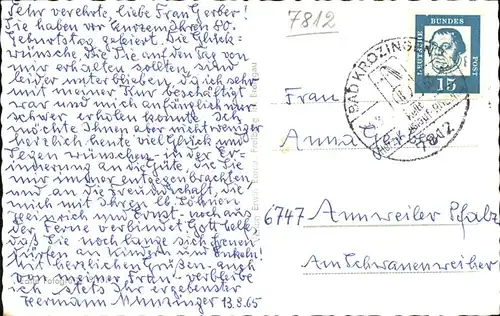 Sehr verehrte, liebe Frau Gerber!
Sie haben vor kurzem Ihren 80.
Geburtstag gefeiert. Die Glück-
wünsche, die Sie auf den Tag von
mir erhalten sollten, sind
leider unterblieben, da ich sehr
mit meiner Kur beschäftigt
war und mich anfänglich nur
schwer erholen konnte. Ich
möchte Ihnen aber nicht weniger
herzlich heute viel Glück und
Segen wünschen in der Er-
innerung an die Güte, die Sie
mir immer entgegenbrachten
und an die Freundschaft, die
mich mit Ihren Söhnen
Heinrich und Ernst noch aus
der Ferne verbindet. Gott gebe,
daß Sie noch lange sich freuen
dürfen an Kindern und Enkeln!
Mit herzlichen Grüßen, auch
von meiner Frau, verbleibe
ich stets Ihr ergebenster
Hermann Munzinger 13.8.65
7812
DEUTSCHE BUNDESPOST
15
BAD KROZINGEN
7812
Frau
Anna Gerber
6747 Annweiler Pfalz
Am Schwanenweiher